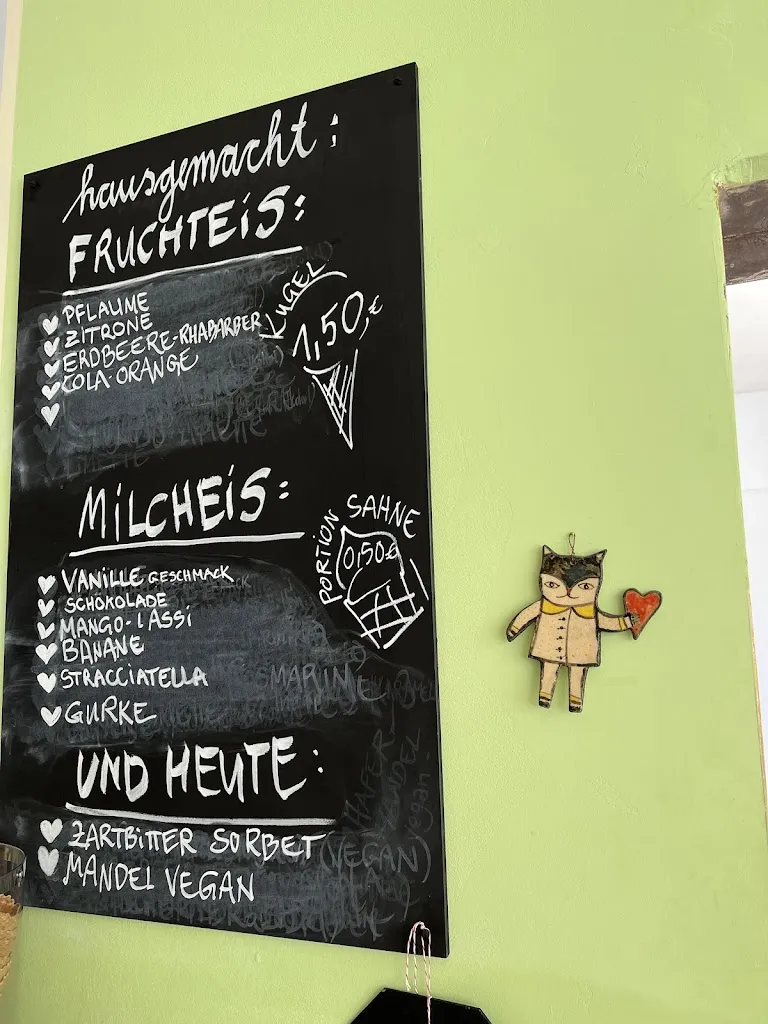 hausgemacht:
FRUCHTEiS:
PFLAUME
ZITRONE
ERDBEERE-RHABARBER
COLA-ORANGE
KUGEL
1,50,€
MiLCHEiS:
PORTION SAHNE
0,50€
VANILLE GESCHMACK
SCHOKOLADE
MANGO-LASSi
BANANE
STRACCIATELLA
GURKE
UND HEUTE:
ZARTBITTER SORBET
(VEGAN)
MANDEL VEGAN